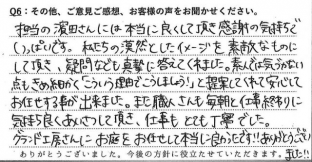 Q6：その他、ご意見ご感想、お客様の声をお聞かせください。
担当の濱田さんには本当に良くして頂き感謝の気持ちで
いっぱいです。私たちの漠然としたイメージを素敵なものに
して頂き、疑問なども真摯に答えてくれました。素人では気づかない
点もきめ細かく"こういう理由でこうしましょう!"と提案してくれて安心して
お任せする事が出来ました。また職人さんも毎朝と仕事終わりに
気持ち良くあいさつして頂き、仕事もとても丁寧でした。
グランド工房さんにお庭をお任せして本当に良かったです!!ありがとうござい
ありがとうございました。今後の方針に役立たせていただきます。
ました!!